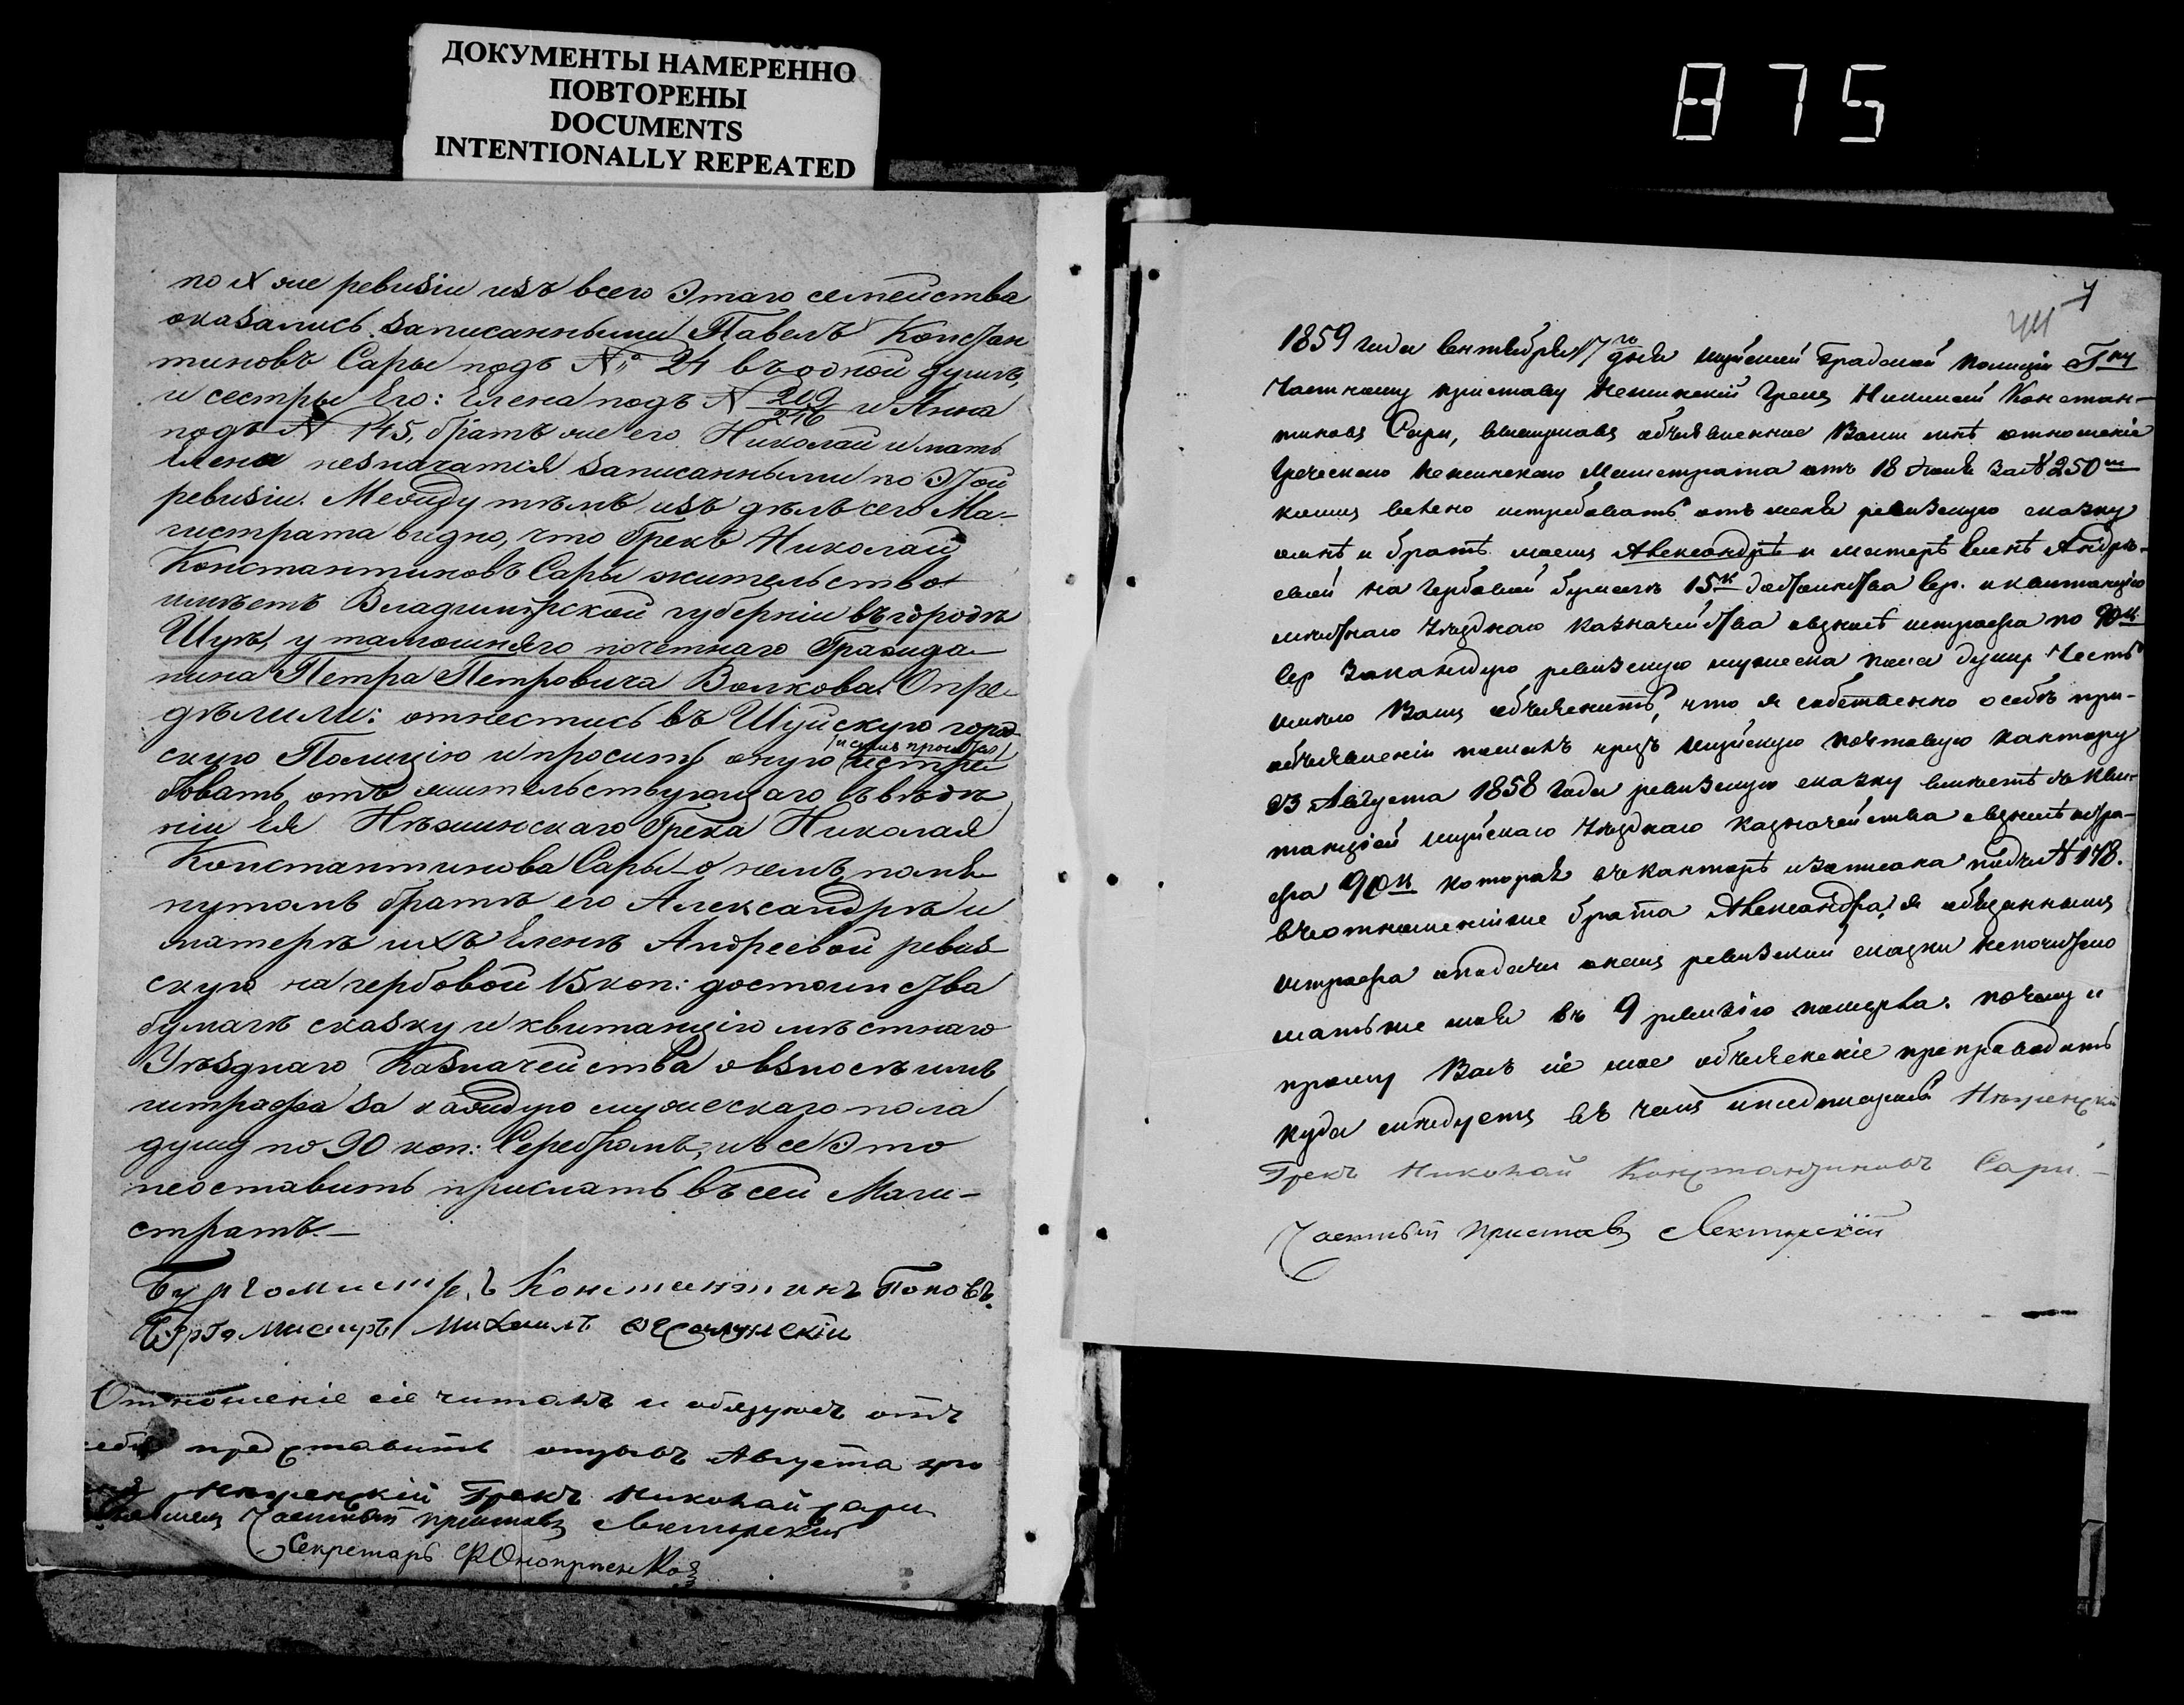 ДОКУМЕНТЫ НАМЕРЕННО
ПОВТОРЕНЫ
DOCUMENTS
INTENTIONALLY REPEATED
875
по X же ревизіи изъ всего Этаго семейства
оказались записанными Павелъ Констан
тиновъ Сары подъ № 24 въ одной душѣ,
и сестры Его: Елена подъ N 209/216 и Анна
подъ N 145, братъ же его Николай и мать
Елена незначатся записанными по Этой
ревизіи. Между тѣмъ изъ дѣлъ сего Ма-
гистрата видно, что Грекъ Николай
Константиновъ Сары жительство
имѣетъ Владимірской губерніи въ городѣ
Шуѣ, у тамошняго почетнаго Гражда
нина Петра Петровича Волкова. Опре
дѣлили: отнестись въ Шуйскую город
скую Полицію и просить оную истре
бовать отъ жительствующаго въ вѣдѣ
ніи Ея Нѣжинскаго Грека Николая
Константинова Сары о немъ, помя
нутомъ братѣ его Александрѣ и
матерѣ ихъ Еленѣ Андреевой ревиз
скую на гербовой 15 коп: достоинства
бумагѣ сказку и квитанцію мѣстнаго
Уѣзднаго Казначейства о взносѣ имъ
штрафа за каждую мужескаго пола
душу по 90 коп: Серебромъ, и все Это
неоставить прислать въ сей Маги-
стратъ.—
Бургомистръ Константинъ Поповъ.
Бургомистръ Михаилъ
Отношеніе сіе читалъ и обязуюсь отъ
себя представить отзывъ Августа
Нѣженскій Грекъ Николай Сари
Частный приставъ Лекторскій
Секретарь Оноприенко
7
1859 года Сентября 17го дня Шуйской Градской Полиціи Гну
Частному приставу Нежинскій Грекъ Николай Констан-
тиновъ Сари, вы объявленное Вами мнѣ отношеніе
Греческаго Нежинскаго Магистрата отъ 18 Іюня за N 250м
коимъ велено истребовать отъ меня ревизскую сказку
омнѣ и братѣ моемъ Александрѣ и матерѣ Еленѣ Андре-
евой на Гербовой бумагѣ 15к достоинства Сер. и квитанцію
мѣстнаго Уѣзднаго Казначейства овзносѣ штрафа по 90к
Сер за каждую ревизскую мужеска пола душу Честь
имѣю Вамъ объяснить, что я собственно о себѣ при-
объявленіи послалъ чрезъ Шуйскую почтовую кантору
23 Августа 1858 года ревизскую сказку вместѣ съ кви-
танціей Шуйскаго Уѣзднаго Казначейства овзносѣ штра-
фа 90к которая въ канторѣ и записана подъ N 148.
въ отношеніи же брата Александра, я обязаннымъ
штрафа и подачи онаго ревизской сказки непочитаю
мать же моя въ 9 ревизію померла. почему и
прошу Васъ сіе мое объясненіе препроводить
куда слѣдуетъ въ чемъ и подписуюсь Нѣженскій
Грекъ Николай Константиновъ Сари.—
Частный приставъ Лекторскій